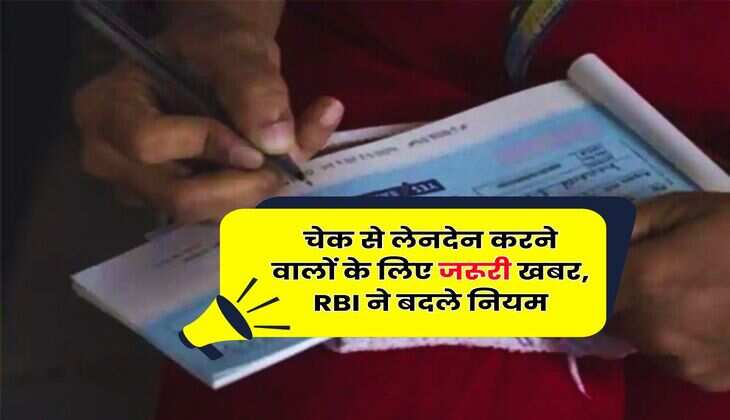 चेक से लेनदेन करने
वालों के लिए जरूरी खबर,
RBI ने बदले नियम